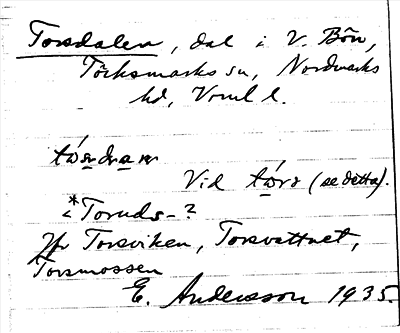 Torsdalen, dal i V. Bön,
Töcksmarks sn, Nordmarks
hd, Vrml l.
Vid (se detta).
*< Toruds-?
Jfr Torsviken, Torsvattnet,
Torsmossen
E. Andersson 1935.